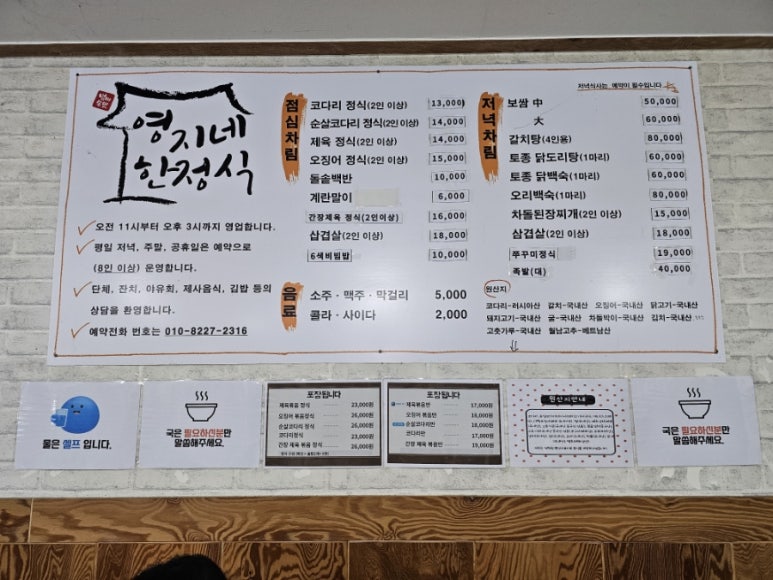 영지네
한정식
오전 11시부터 오후 3시까지 영업합니다.
평일 저녁, 주말, 공휴일은 예약으로
(8인 이상) 운영합니다.
단체, 잔치, 야유회, 제사음식, 김밥 등의
상담을 환영합니다.
예약전화 번호는 010-8227-2316
점심차림
코다리 정식(2인 이상) 13,000
순살코다리 정식(2인 이상) 14,000
제육 정식(2인 이상) 14,000
오징어 정식(2인 이상) 15,000
돌솥백반 10,000
계란말이 6,000
간장제육 정식(2인이상) 16,000
삼겹살(2인 이상) 18,000
6색비빔밥 10,000
음료
소주 · 맥주 · 막걸리 5,000
콜라 · 사이다 2,000
저녁식사는 예약이 필수입니다
저녁차림
보쌈 中 50,000
大 60,000
갈치탕(4인용) 80,000
토종 닭도리탕(1마리) 60,000
토종 닭백숙(1마리) 60,000
오리백숙(1마리) 80,000
차돌된장찌개(2인 이상) 15,000
삼겹살(2인 이상) 18,000
쭈꾸미정식 19,000
족발(대) 40,000
원산지
코다리-러시아산 갈치-국내산 오징어-국내산 닭고기-국내산
돼지고기-국내산 굴-국내산 차돌박이-국내산 김치-국내산
고춧가루-국내산 월남고추-베트남산
물은 셀프 입니다.
국은 필요하신분만
말씀해주세요.
포장됩니다
제육볶음 정식 23,000원
오징어 볶음정식 26,000원
순살코다리정식 26,000원
코다리정식 23,000원
간장 제육 볶음 정식 26,000원
포장됩니다
제육볶음반 17,000원
오징어 볶음반 18,000원
순살코다리반 18,000원
코다리반
간장 제육 볶음반
원산지안내
국은 필요하신분만
말씀해주세요.